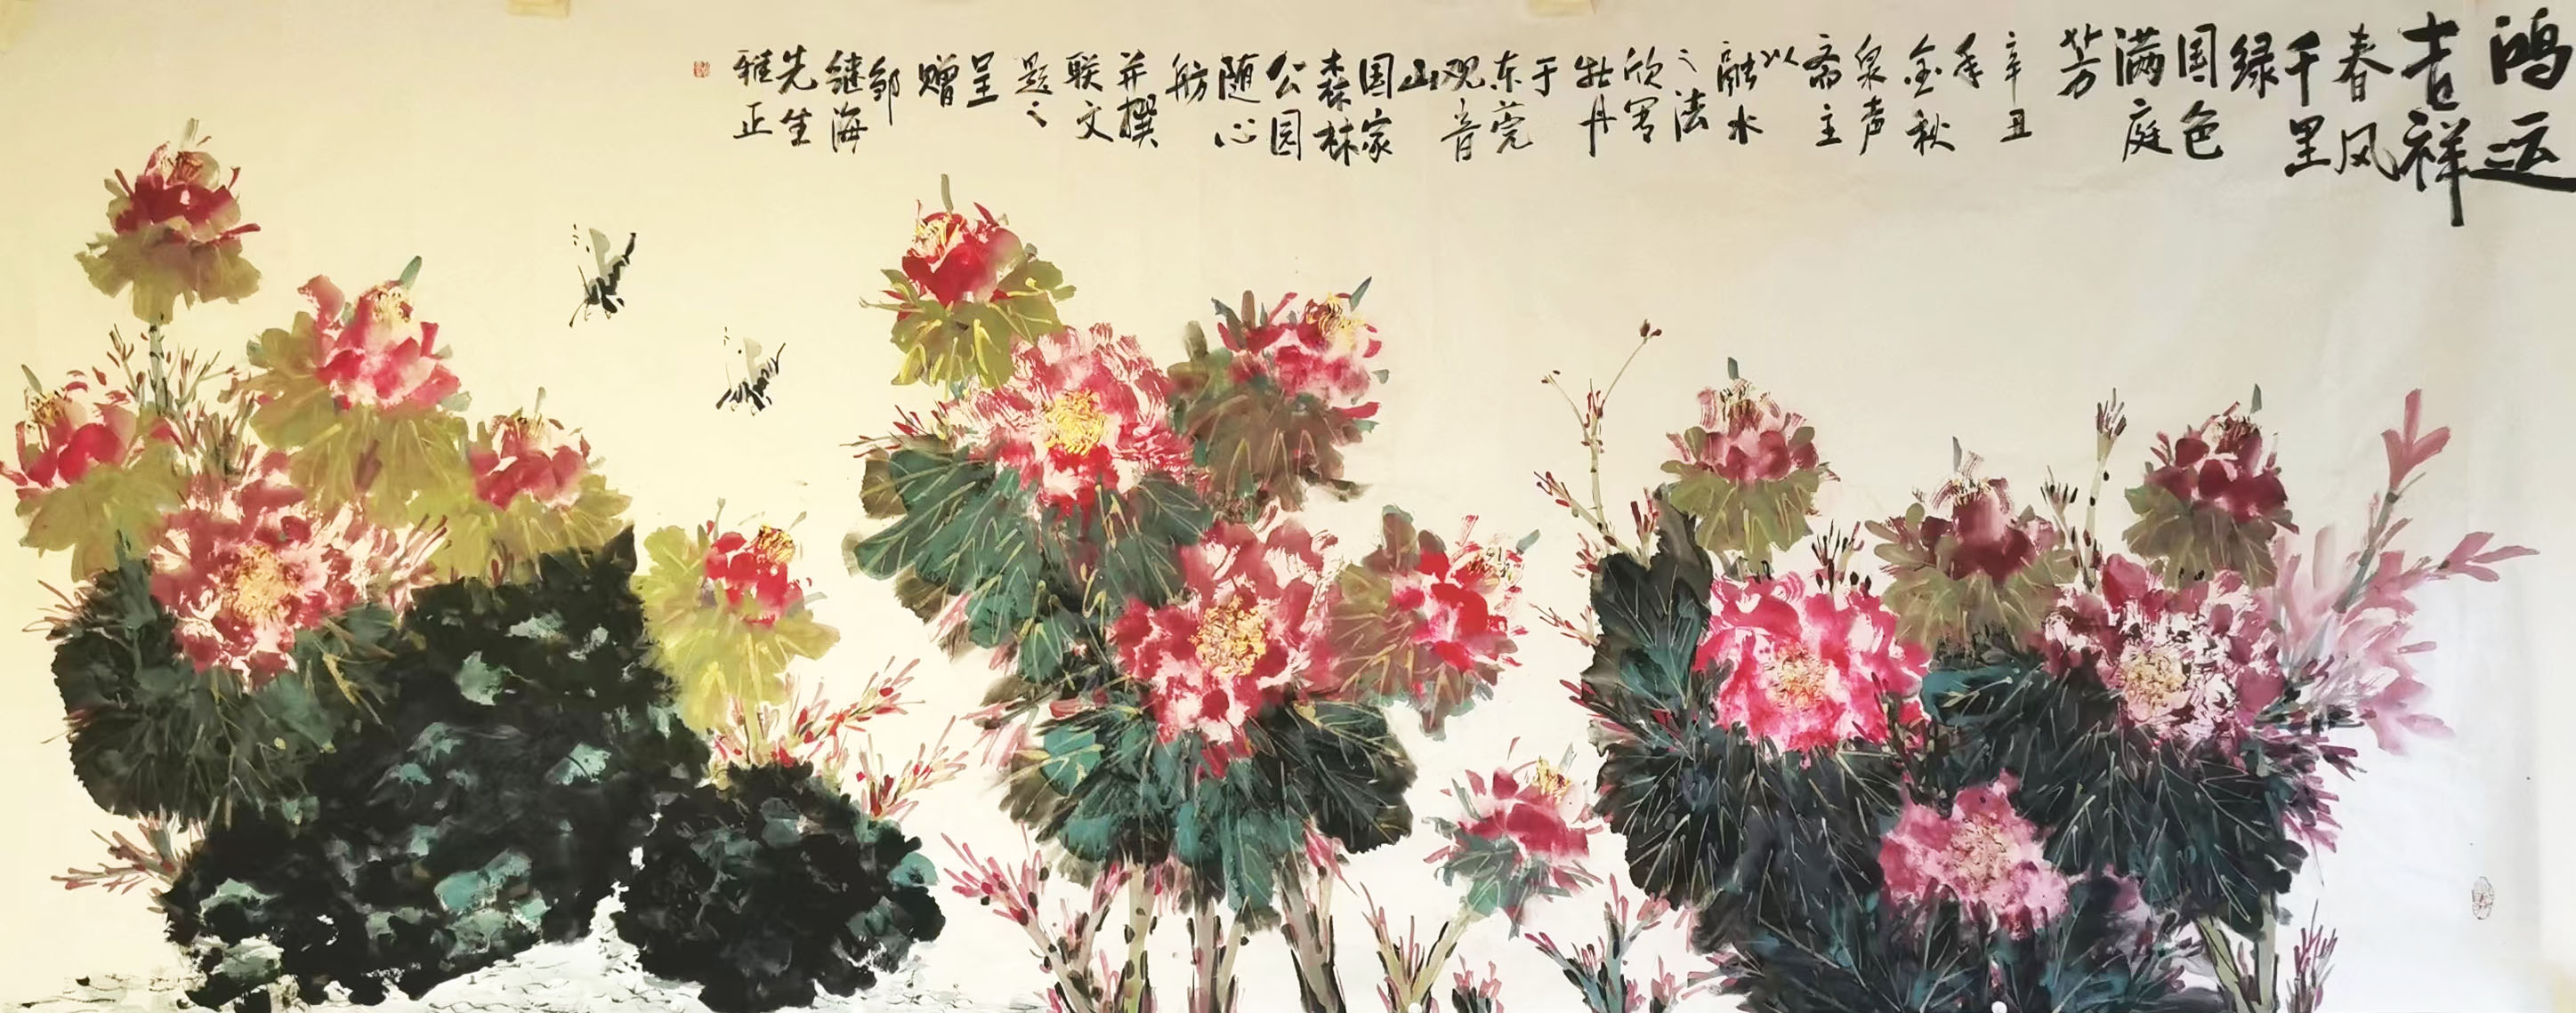 鸿运
吉祥
春风
千里
绿
国色
满庭
芳
辛丑
年
金秋
泉声
斋主
以
融水
之法
欣写
牡丹
于
东莞
观音
山
国家
森林
公园
随心
舫
并撰
联文
题之
呈
赠
邹
继海
先生
雅正